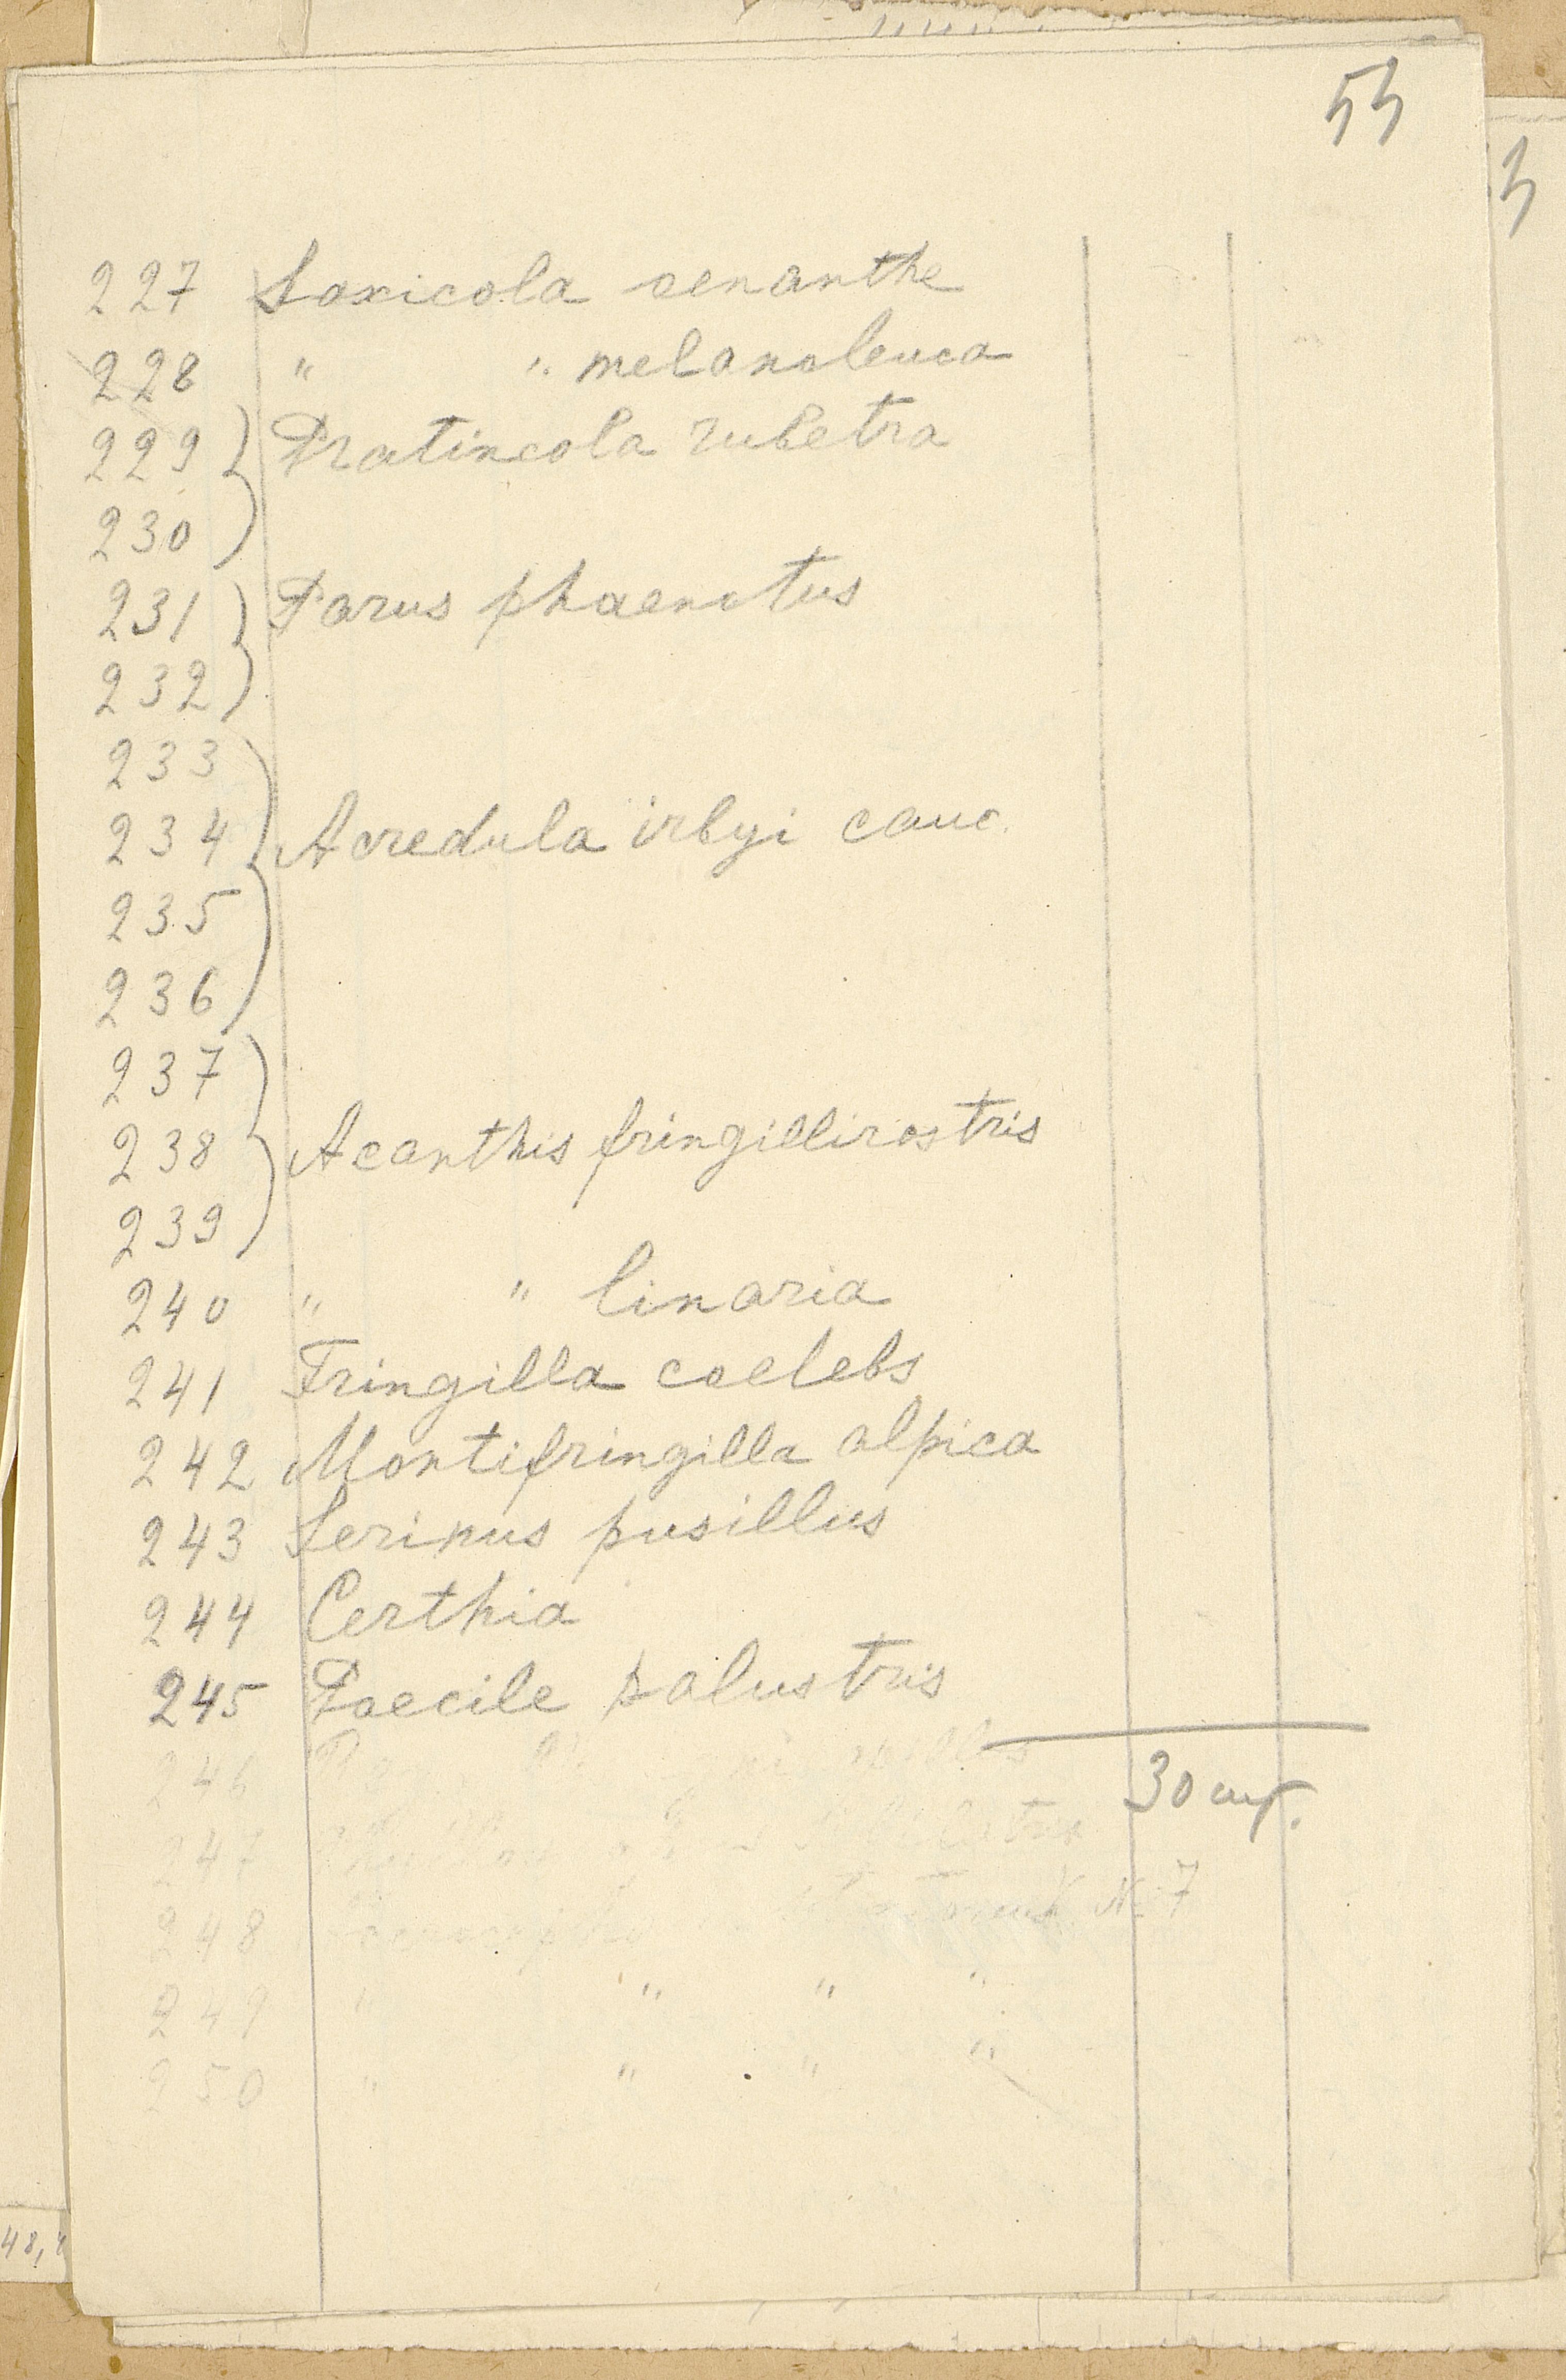 55
227 Saxicola oenanthe
228 " " melanoleuca
229 } Pratincola rubetra
230
231 } Parus phaenotus
232
233
234 } Acredula irbyi cauc.
235
236
237
238 } Acanthis fringillirostris
239
240 " " linaria
241 Fringilla coelebs
242 Montifringilla alpica
243 Serinus pusillus
244 Certhia
245 Poecile palustris
246
30 шт.
247
248 № 7
249 " " " "
250 " " " "
48,